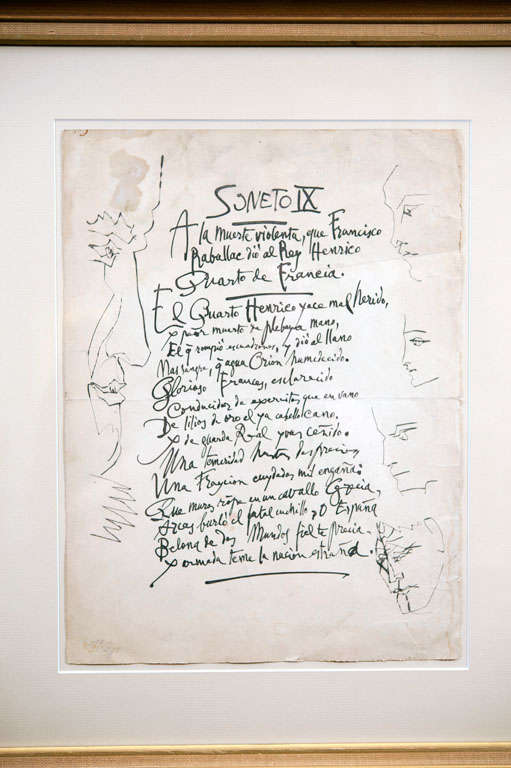 SONETO IX
A la muerte violenta, que Francisco
Raballac dió al Rey Henrico
Quarto de Francia.
El Quarto Henrico yace mal herido,
y peor muerto de plebeya mano,
El q̃ rompió escuadrones, y dió al llano
Mas sangre, q̃ agua Orion humedecido.
Glorioso Frances esclarecido
Conducidor de exercitos, que en vano
De lilios de oro el ya cabello cano,
y de guarda Real yvas ceñido.
Una temeridad hastas desprecia,
Una Traycion cuydados mil engaña.
Que muros rõpe en un caballo Grecia,
Arcos burló el fatal cuchillo, O España
Belona de dos Mundos fiel te precia
y armada teme la nacion estraña.